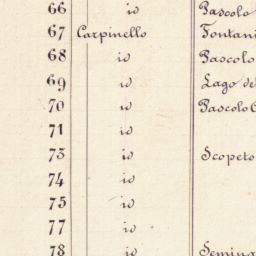 66 id Pascolo
67 Carpinello
68 id Pascolo
69 id Lago de
70 id Pascolo
71 id
73 id Scopeto
74 id
75 id
77 id
78 id